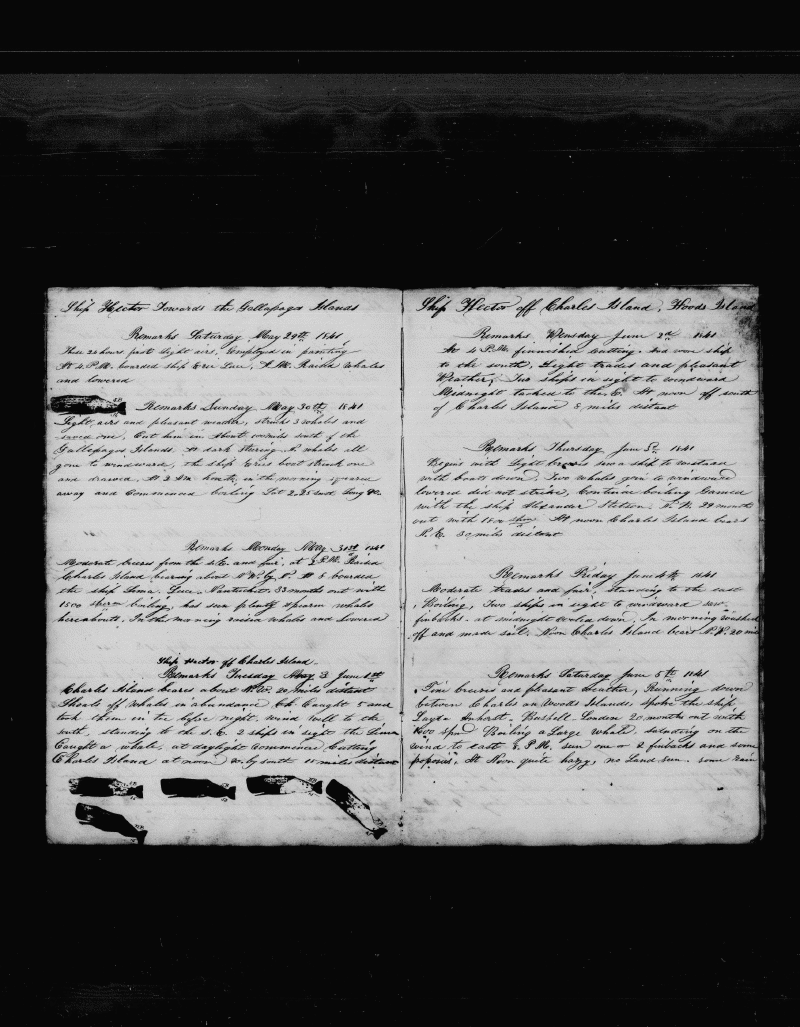 Ship Hector Towards the Gallapagos Islands
Remarks Saturday May 29th 1841
These 24 hours first light airs, Employed in painting
At 4 P.M. boarded ship Luce, A.M. Raised Whales
and lowered
Remarks Sunday May 30th 1841
Light airs and pleasant weather, struck 3 whales and
saved one, Cut him in About miles south of the
Gallapagos Islands. At dark Whales all
gone to windward, the ship boat struck one
and in the morning
away and Commenced boiling Lat 2.25 south Long
Remarks Monday May 31st 1841
Moderate breeses from the S.E. and fair, at 2 P.M. Raised
Charles Island bearing about At 5 boarded
the ship Lima. Luce. Nantucket. 33 months out with
1500 sperm boiling, has seen plenty sperm whales
hereabouts. In the morning raised whales and lowered
Ship Hector off Charles Island.
Remarks Tuesday May 3 June 1st
Charles Island beares about 20 miles distant
Shoals off Whales in abundance Caught 5 and
took them in the before night, wind to the
south, standing to the S.E. 2 ships in sight the Lima
Caught a whale, at daylight Commence Cutting
Charles Island at noon by south 15 miles distant
Ship Hector off Charles Island, Hoods Island
Remarks Wensday June 2nd 1841
At 4 P.M. finnished Cutting. And wore ship
to the south, Light trades and pleasant
Weather, Two ships in sight to windward
Midnight tacked to the E. At noon off south
of Charles Island 8 miles distant
Remarks Thursday June 3rd 1841
Begins with Light breeses saw a ship to
with boats down, Two whales goin to windward
lowered did not strike, Continue boiling
with the ship Alexander Stetson. 29 months
out with 1500 spm. At noon Charles Island bears
30 miles distant
Remarks Friday June 4th 1841
Moderate trades and fair, standing to the east
Boiling, Two ships in sight to windward saw
finbacks. at midnight down, In morning washed
off and made sail. Noon Charles Island bears 20 mi
Remarks Saturday June 5th 1841
Fine breeses and pleasant Weather, Running down
between Charles an Woods Islands, spoke the ship
Layda Amherst. Russell. London 20 months out with
1600 spm Boiling a Large Whale. standing on the
wind to east P.M. seen one or 2 finbacks and some
poposis. At Noon quite hazy, no Land seen. some rain